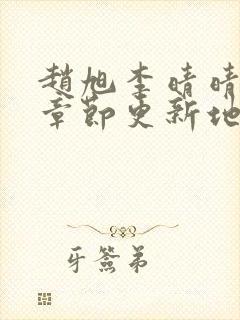 趙旭李晴晴
章節更新地
牙簽弟